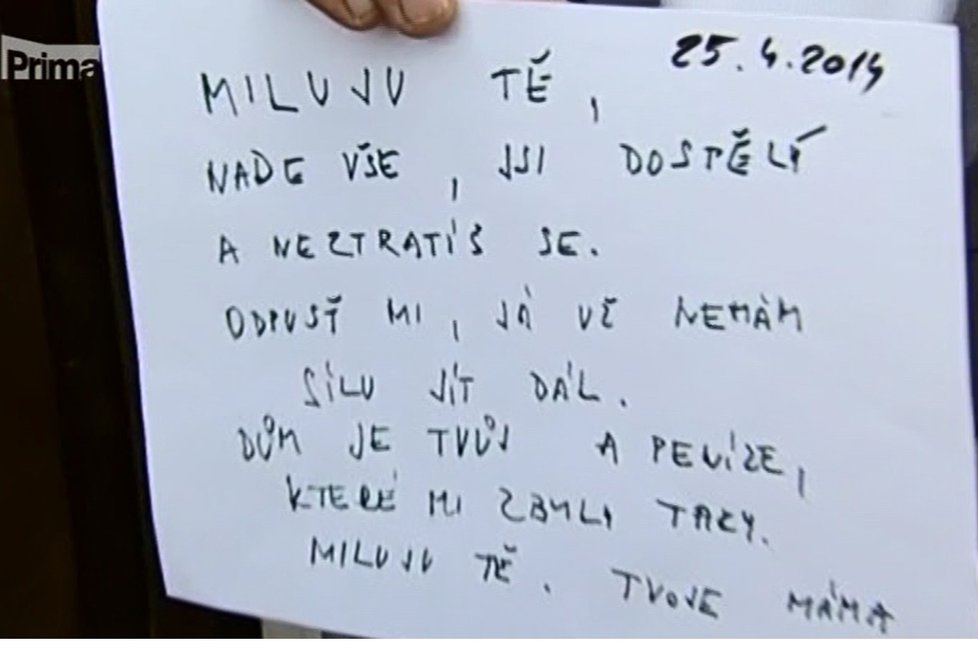 Prima
25.4.2014
MILUJU TĚ,
NADE VŠE, JSI DOSTĚLÍ
A NEZTRATÍŠ SE.
ODPUSŤ MI, JÁ UŽ NEMÁM
SÍLU JÍT DÁL.
DŮM JE TVŮJ A PENÍZE,
KTERÉ MI ZBYLY TAKY.
MILUJU TĚ. TVOJE MÁMA